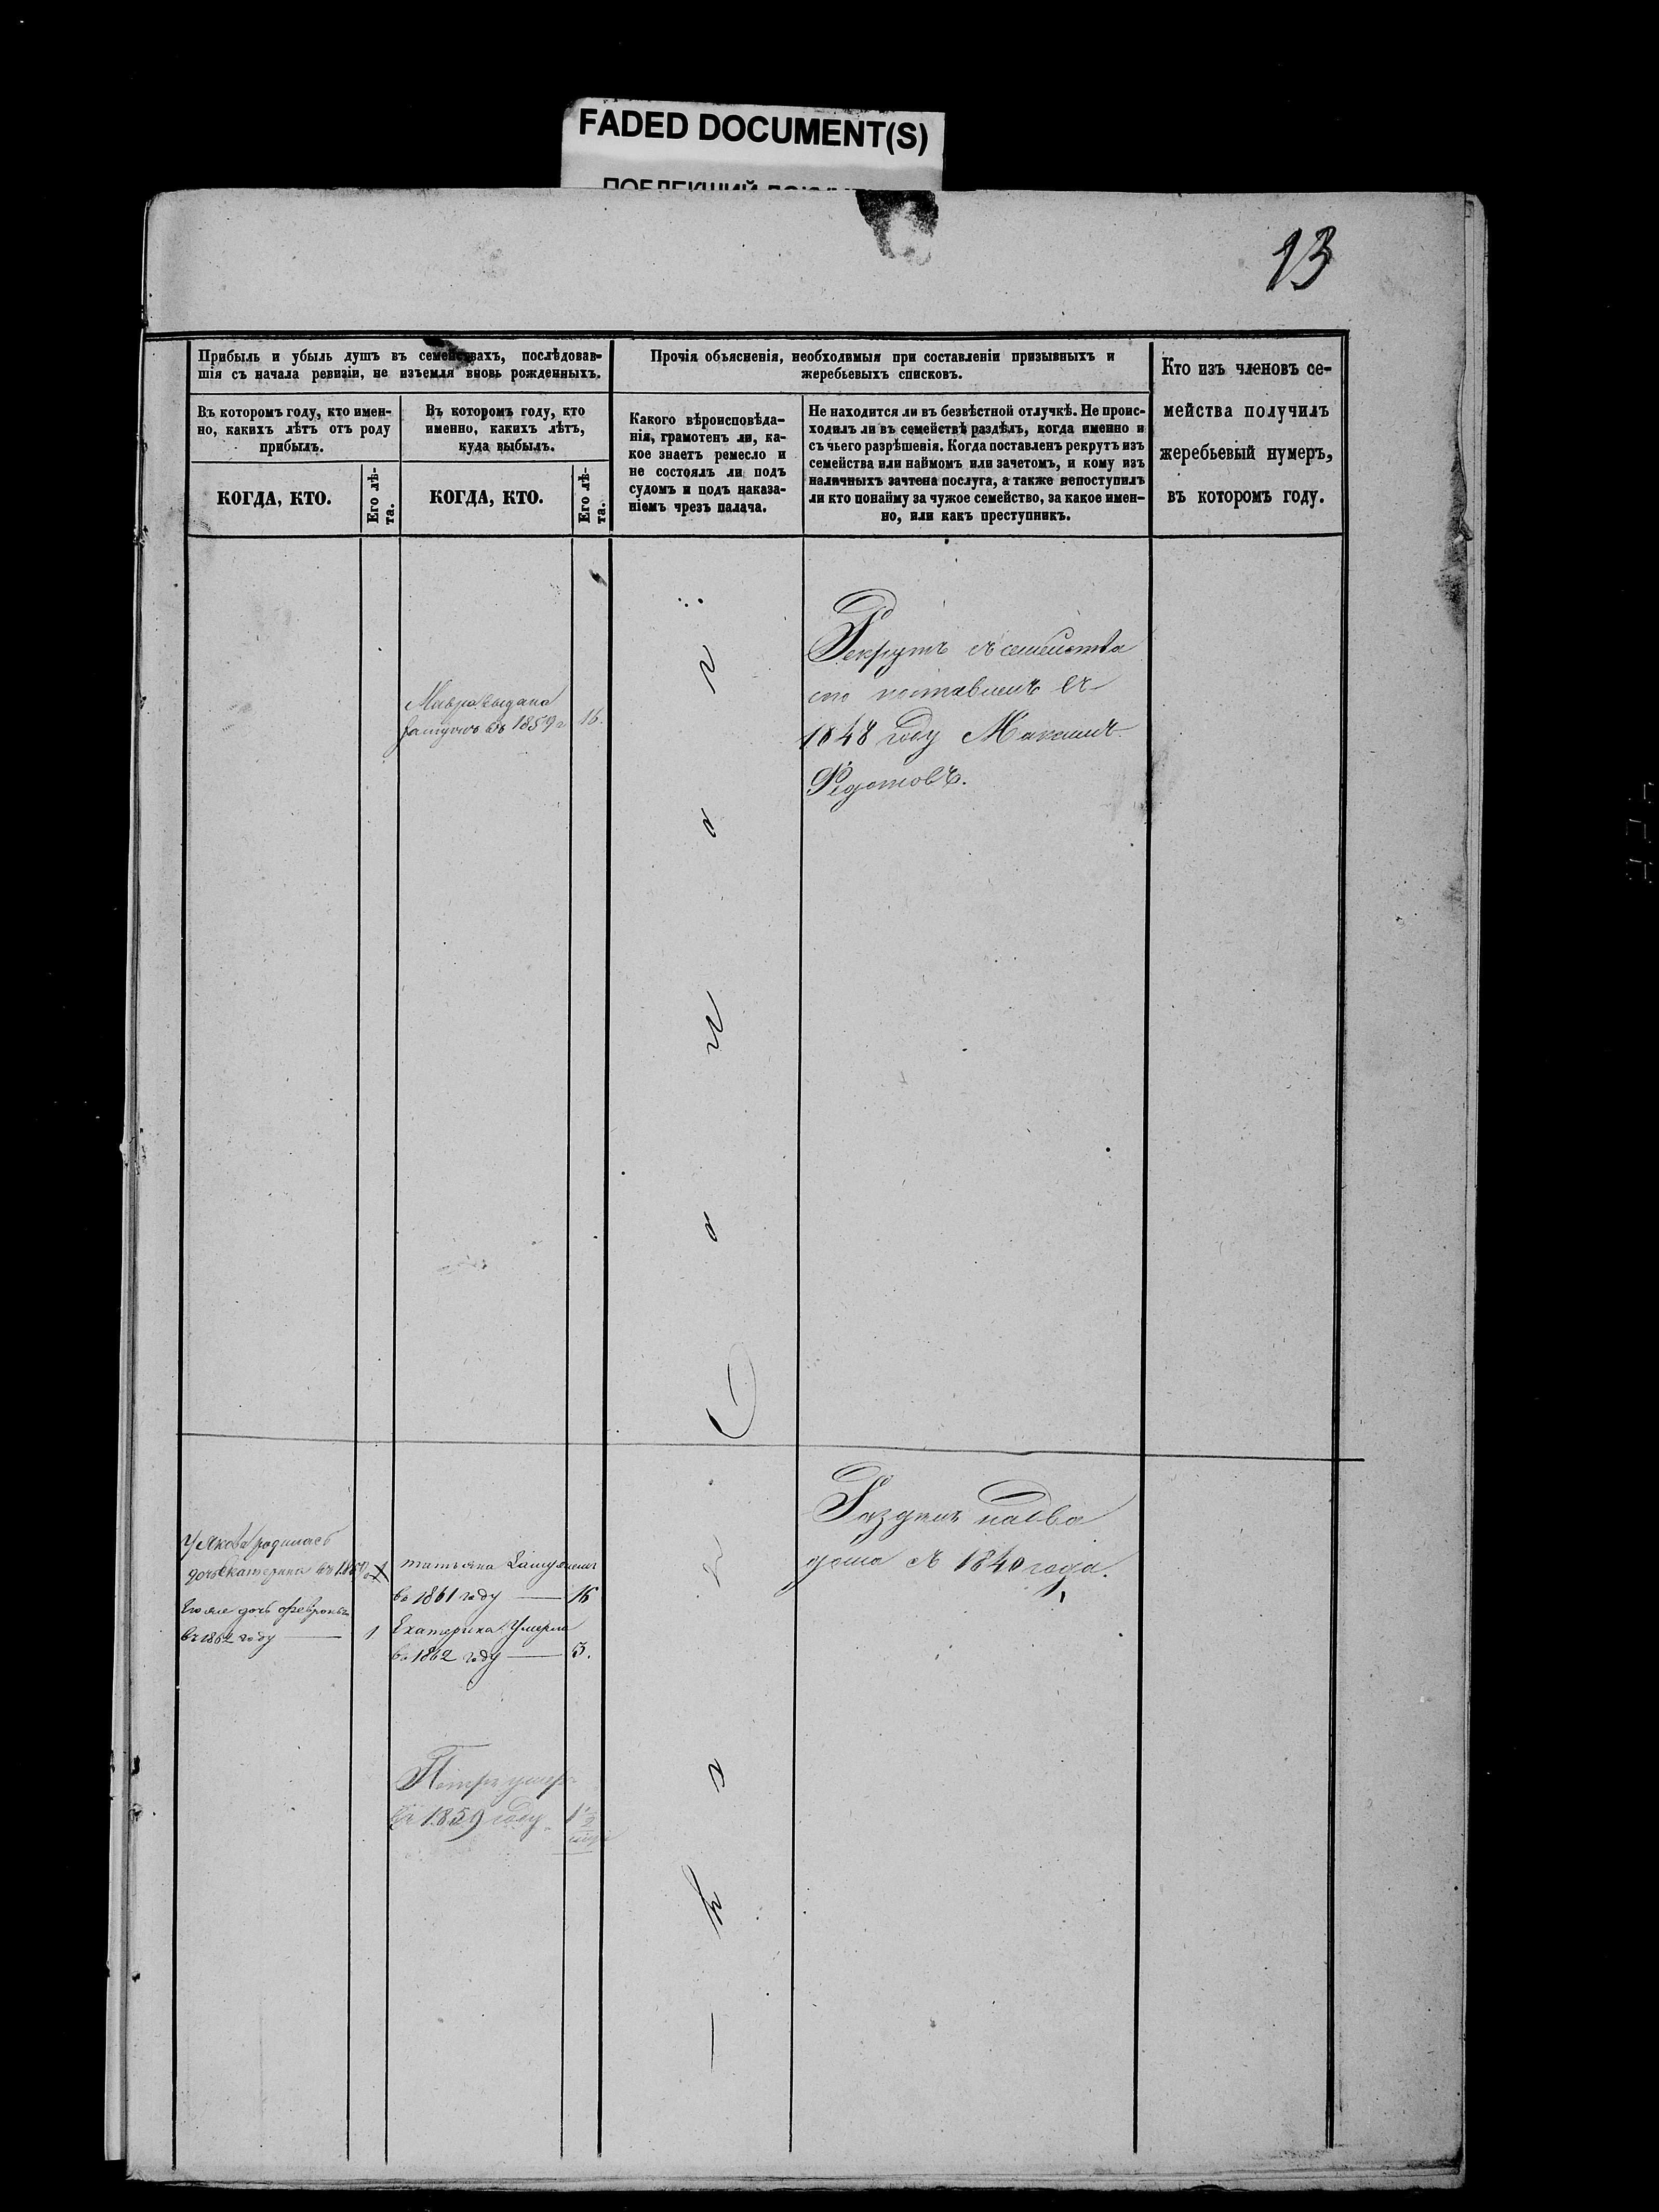 FADED DOCUMENT(S)
13
Прибыль и убыль душъ въ семействахъ, послѣдовав-
шія съ начала ревизіи, не изъемля вновь рожденныхъ.
Прочія объясненія, необходимыя при составленіи призывныхъ и
жеребьевыхъ списковъ.
Кто изъ членовъ се-
мейства получилъ
жеребьевый нумеръ,
въ которомъ году.
Въ которомъ году, кто имен-
но, какихъ лѣтъ отъ роду
прибылъ.
Въ которомъ году, кто
именно, какихъ лѣтъ,
куда выбылъ.
Какого вѣроисповѣда-
нія, грамотенъ ли, ка-
кое знаетъ ремесло и
не состоялъ ли подъ
судомъ и подъ наказа-
ніемъ чрезъ палача.
Не находится ли въ безвѣстной отлучкѣ. Не проис-
ходилъ ли въ семействѣ раздѣлъ, когда именно и
съ чьего разрѣшенія. Когда поставленъ рекрутъ изъ
семейства или наймомъ или зачетомъ, и кому изъ
наличныхъ зачтена послуга, а также непоступилъ
ли кто понайму за чужое семейство, за какое имен-
но, или какъ преступникъ.
КОГДА, КТО.
Его лѣ-
та.
КОГДА, КТО.
Его лѣ-
та.
Мавра выдана
замужъ въ 1859 г 16.
Рекрутъ съ семейства
сего поставленъ въ
1848 году Максимъ
Федотовъ.
У Якова родилась
дочь Екатерина въ
Его же дочь Февронья
въ 1862 году 1.
татьяна Замужъ
въ 1861 году 16
Екатерина Умерла
въ 1862 году 5.
Петръ умеръ
въ 1859 году
Раздѣлъ на два
дома съ 1840 года.